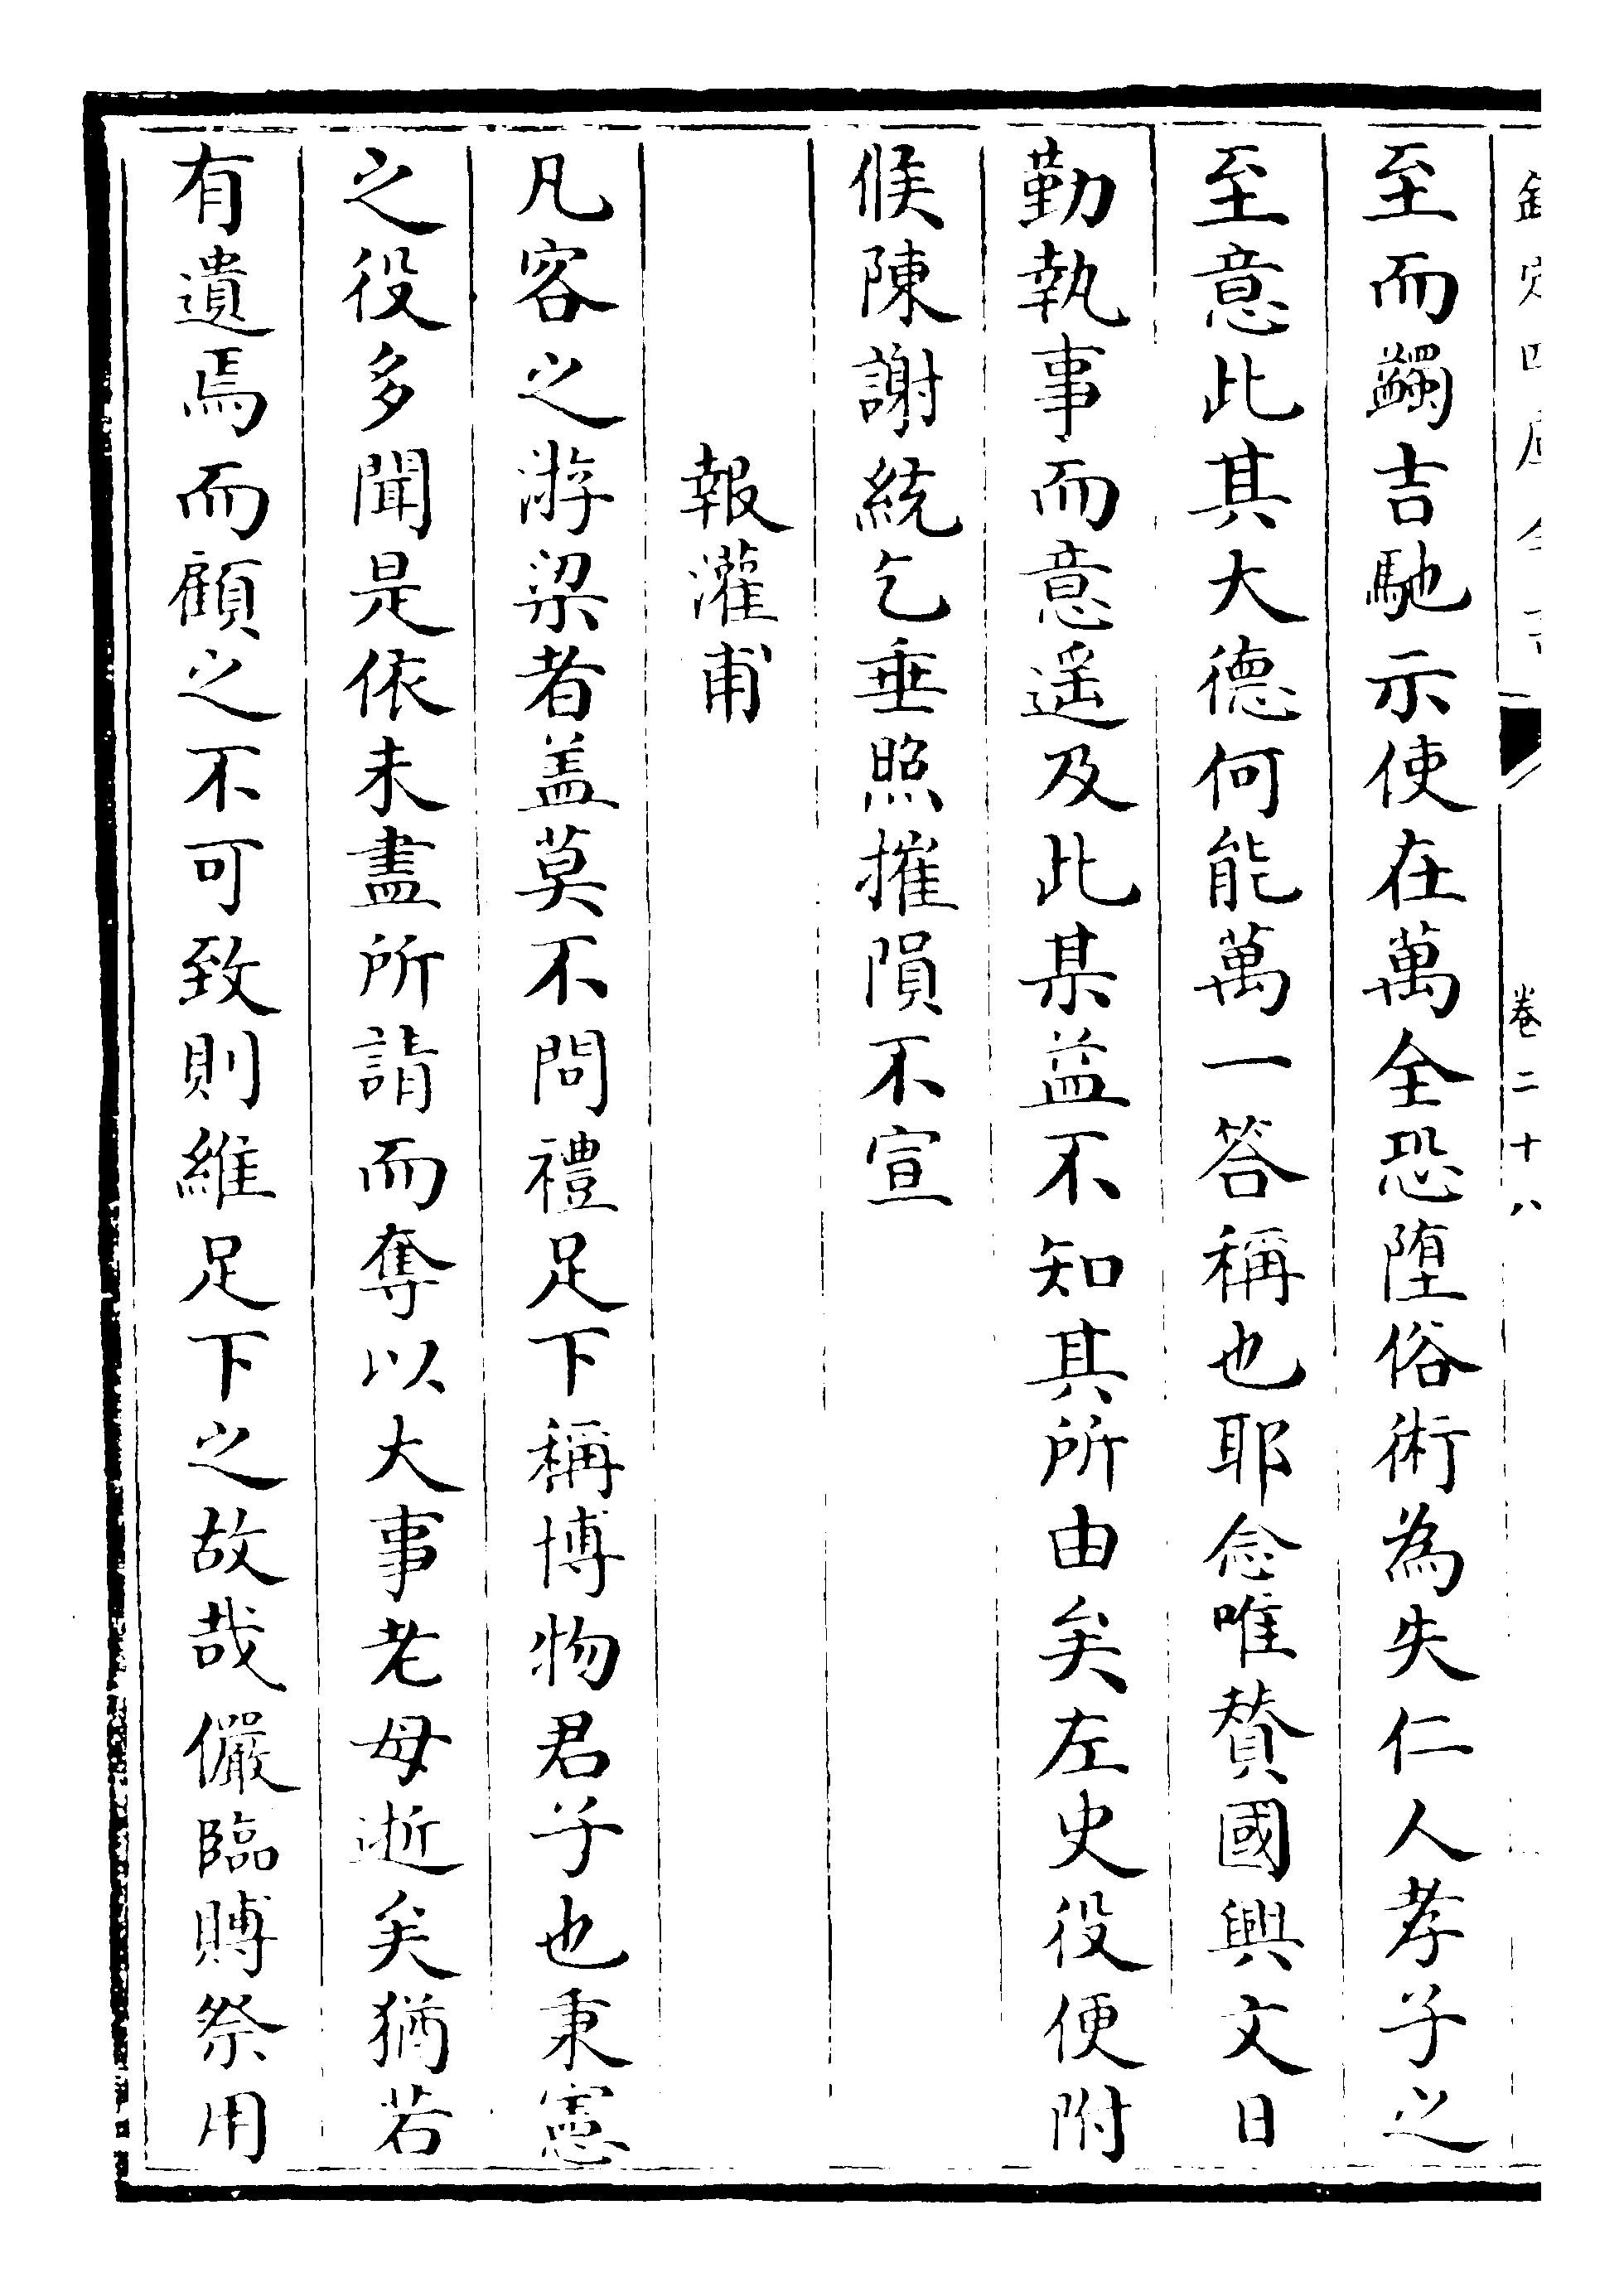 欽定四庫全書
卷二十八
至而蠲吉馳示使在萬全恐堕俗術為失仁人孝子之
至意此其大德何能萬一答稱也耶念唯賛國興文日
勤執事而意遥及此某益不知其所由矣左史役便附
候陳謝統乞垂照摧隕不宣
報灌甫
凡客之游梁者盖莫不問禮足下稱博物君子也秉憲
之役多聞是依未盡所請而奪以大事老母逝矣猶若
有遺焉而顧之不可致則維足下之故哉儼臨賻祭用